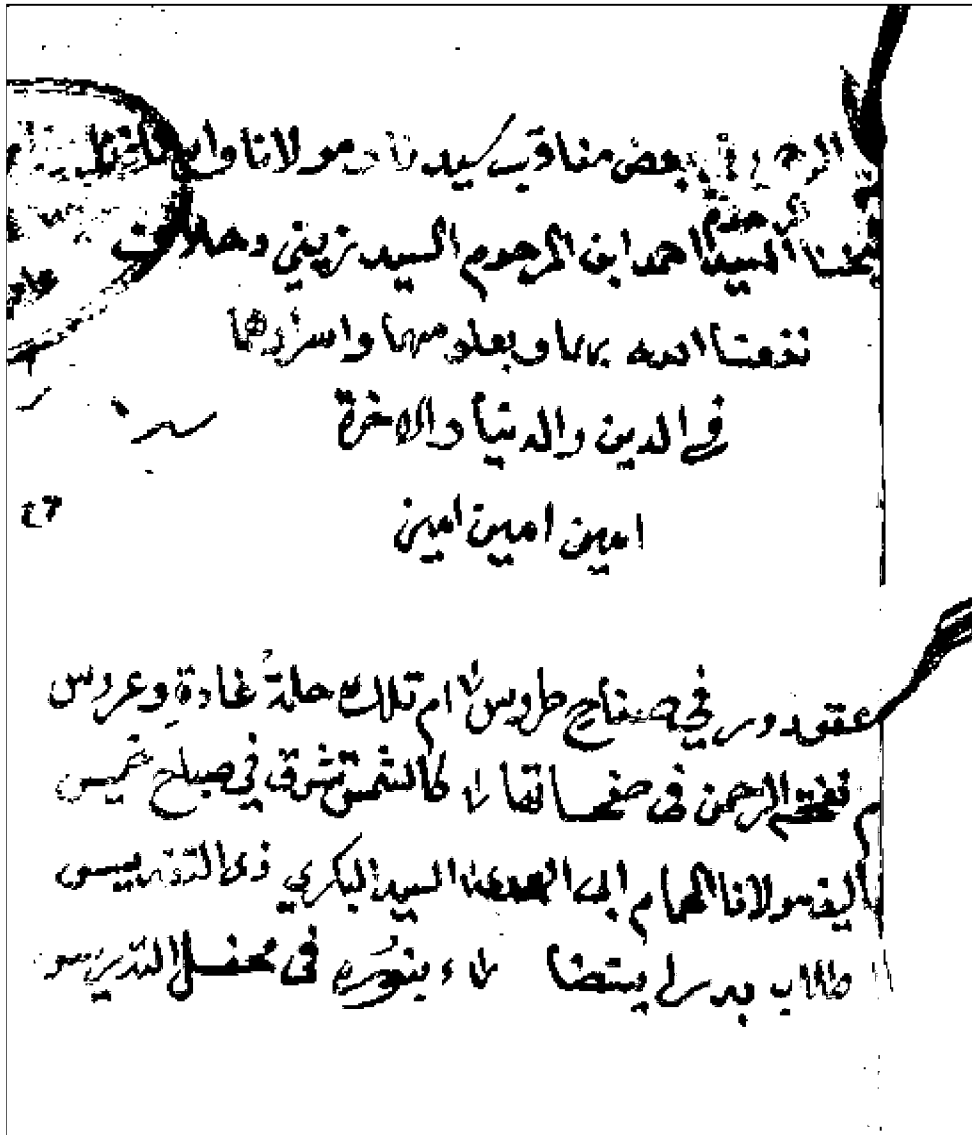 في بعض مناقب سيدنا ومولانا
المرحوم
السيد احمد ابن المرحوم السيد زيني دحلان
نفعنا الله بهما وبعلومهما واسرارهما
في الدين والدنيا والاخرة
٤٦
امين امين امين
عقود در في صفاح طروس ام تلك حلة غادة وعروس
نفحة الرحمن في صفحاتها كالشمس تشرق في صباح خميس
تأليف مولانا الهمام السيد البكري ذي التقديس
بدرا يستضاء بنوره في محفل التدريس